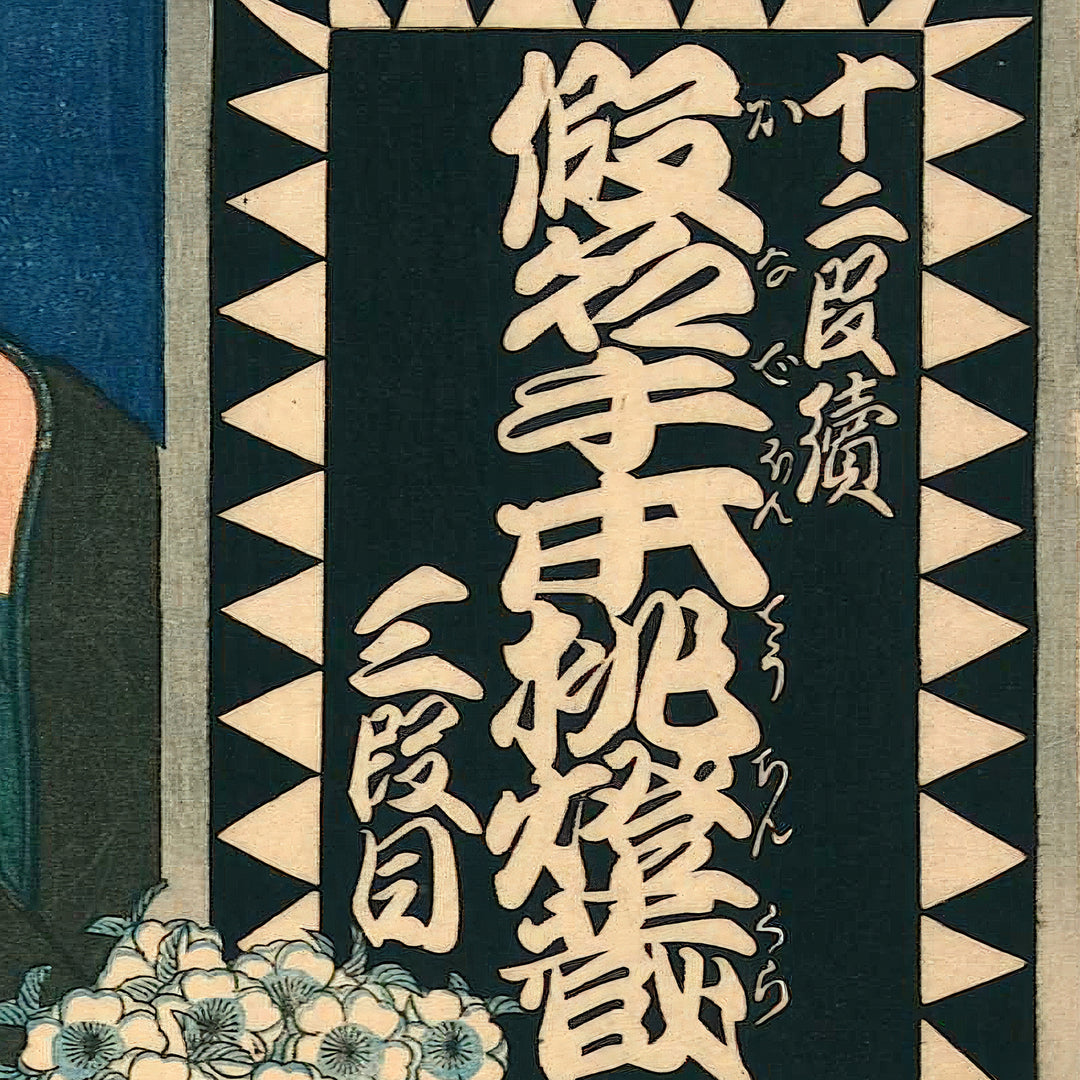 十二段續
假名手本挑燈蔵
かなでほんてうちんくら
三段目